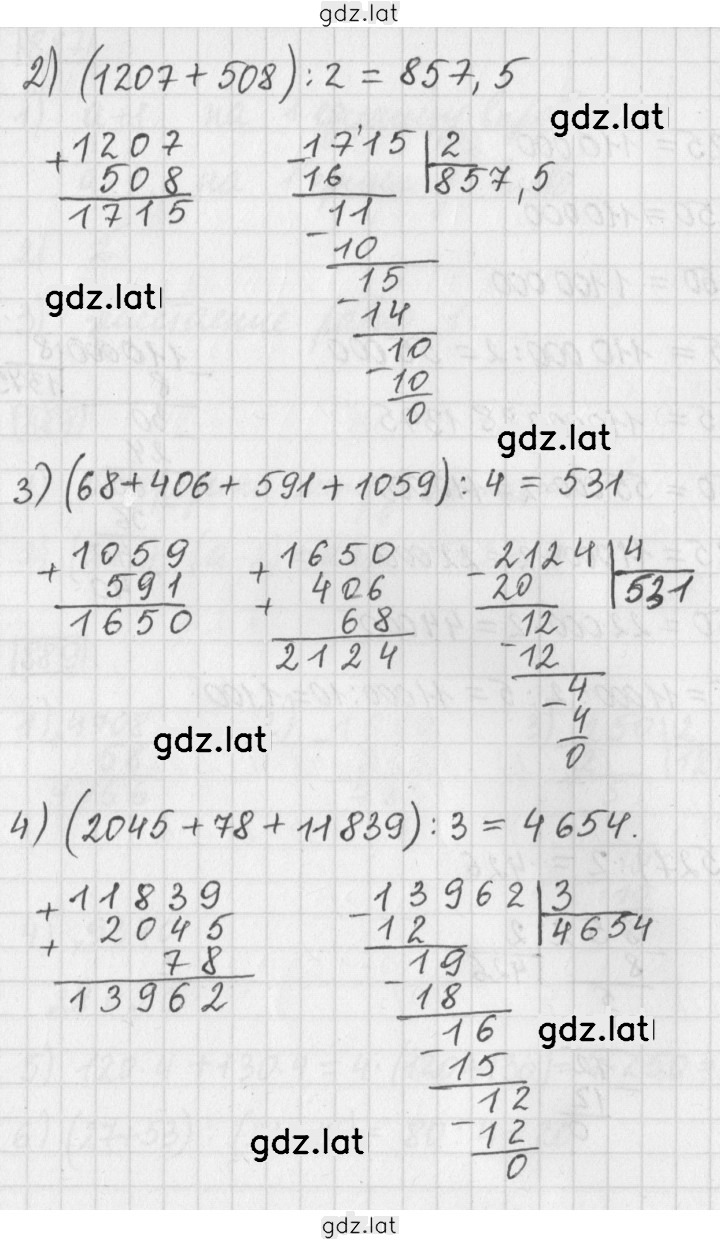 gdz.lat
2) (1207 + 508) : 2 = 857,5
gdz.lat
+ 1207
508
1715
- 1715 | 2
16
857,5
11
- 10
15
- 14
10
- 10
0
gdz.lat
gdz.lat
3) (68 + 406 + 591 + 1059) : 4 = 531
+ 1059
591
1650
+ 1650
+ 406
68
2124
- 2124 | 4
20
531
12
- 12
4
- 4
0
gdz.lat
4) (2045 + 78 + 11839) : 3 = 4654.
+ 11839
+ 2045
78
13962
- 13962 | 3
12
4654
19
- 18
16
- 15
12
- 12
0
gdz.lat
gdz.lat
gdz.lat